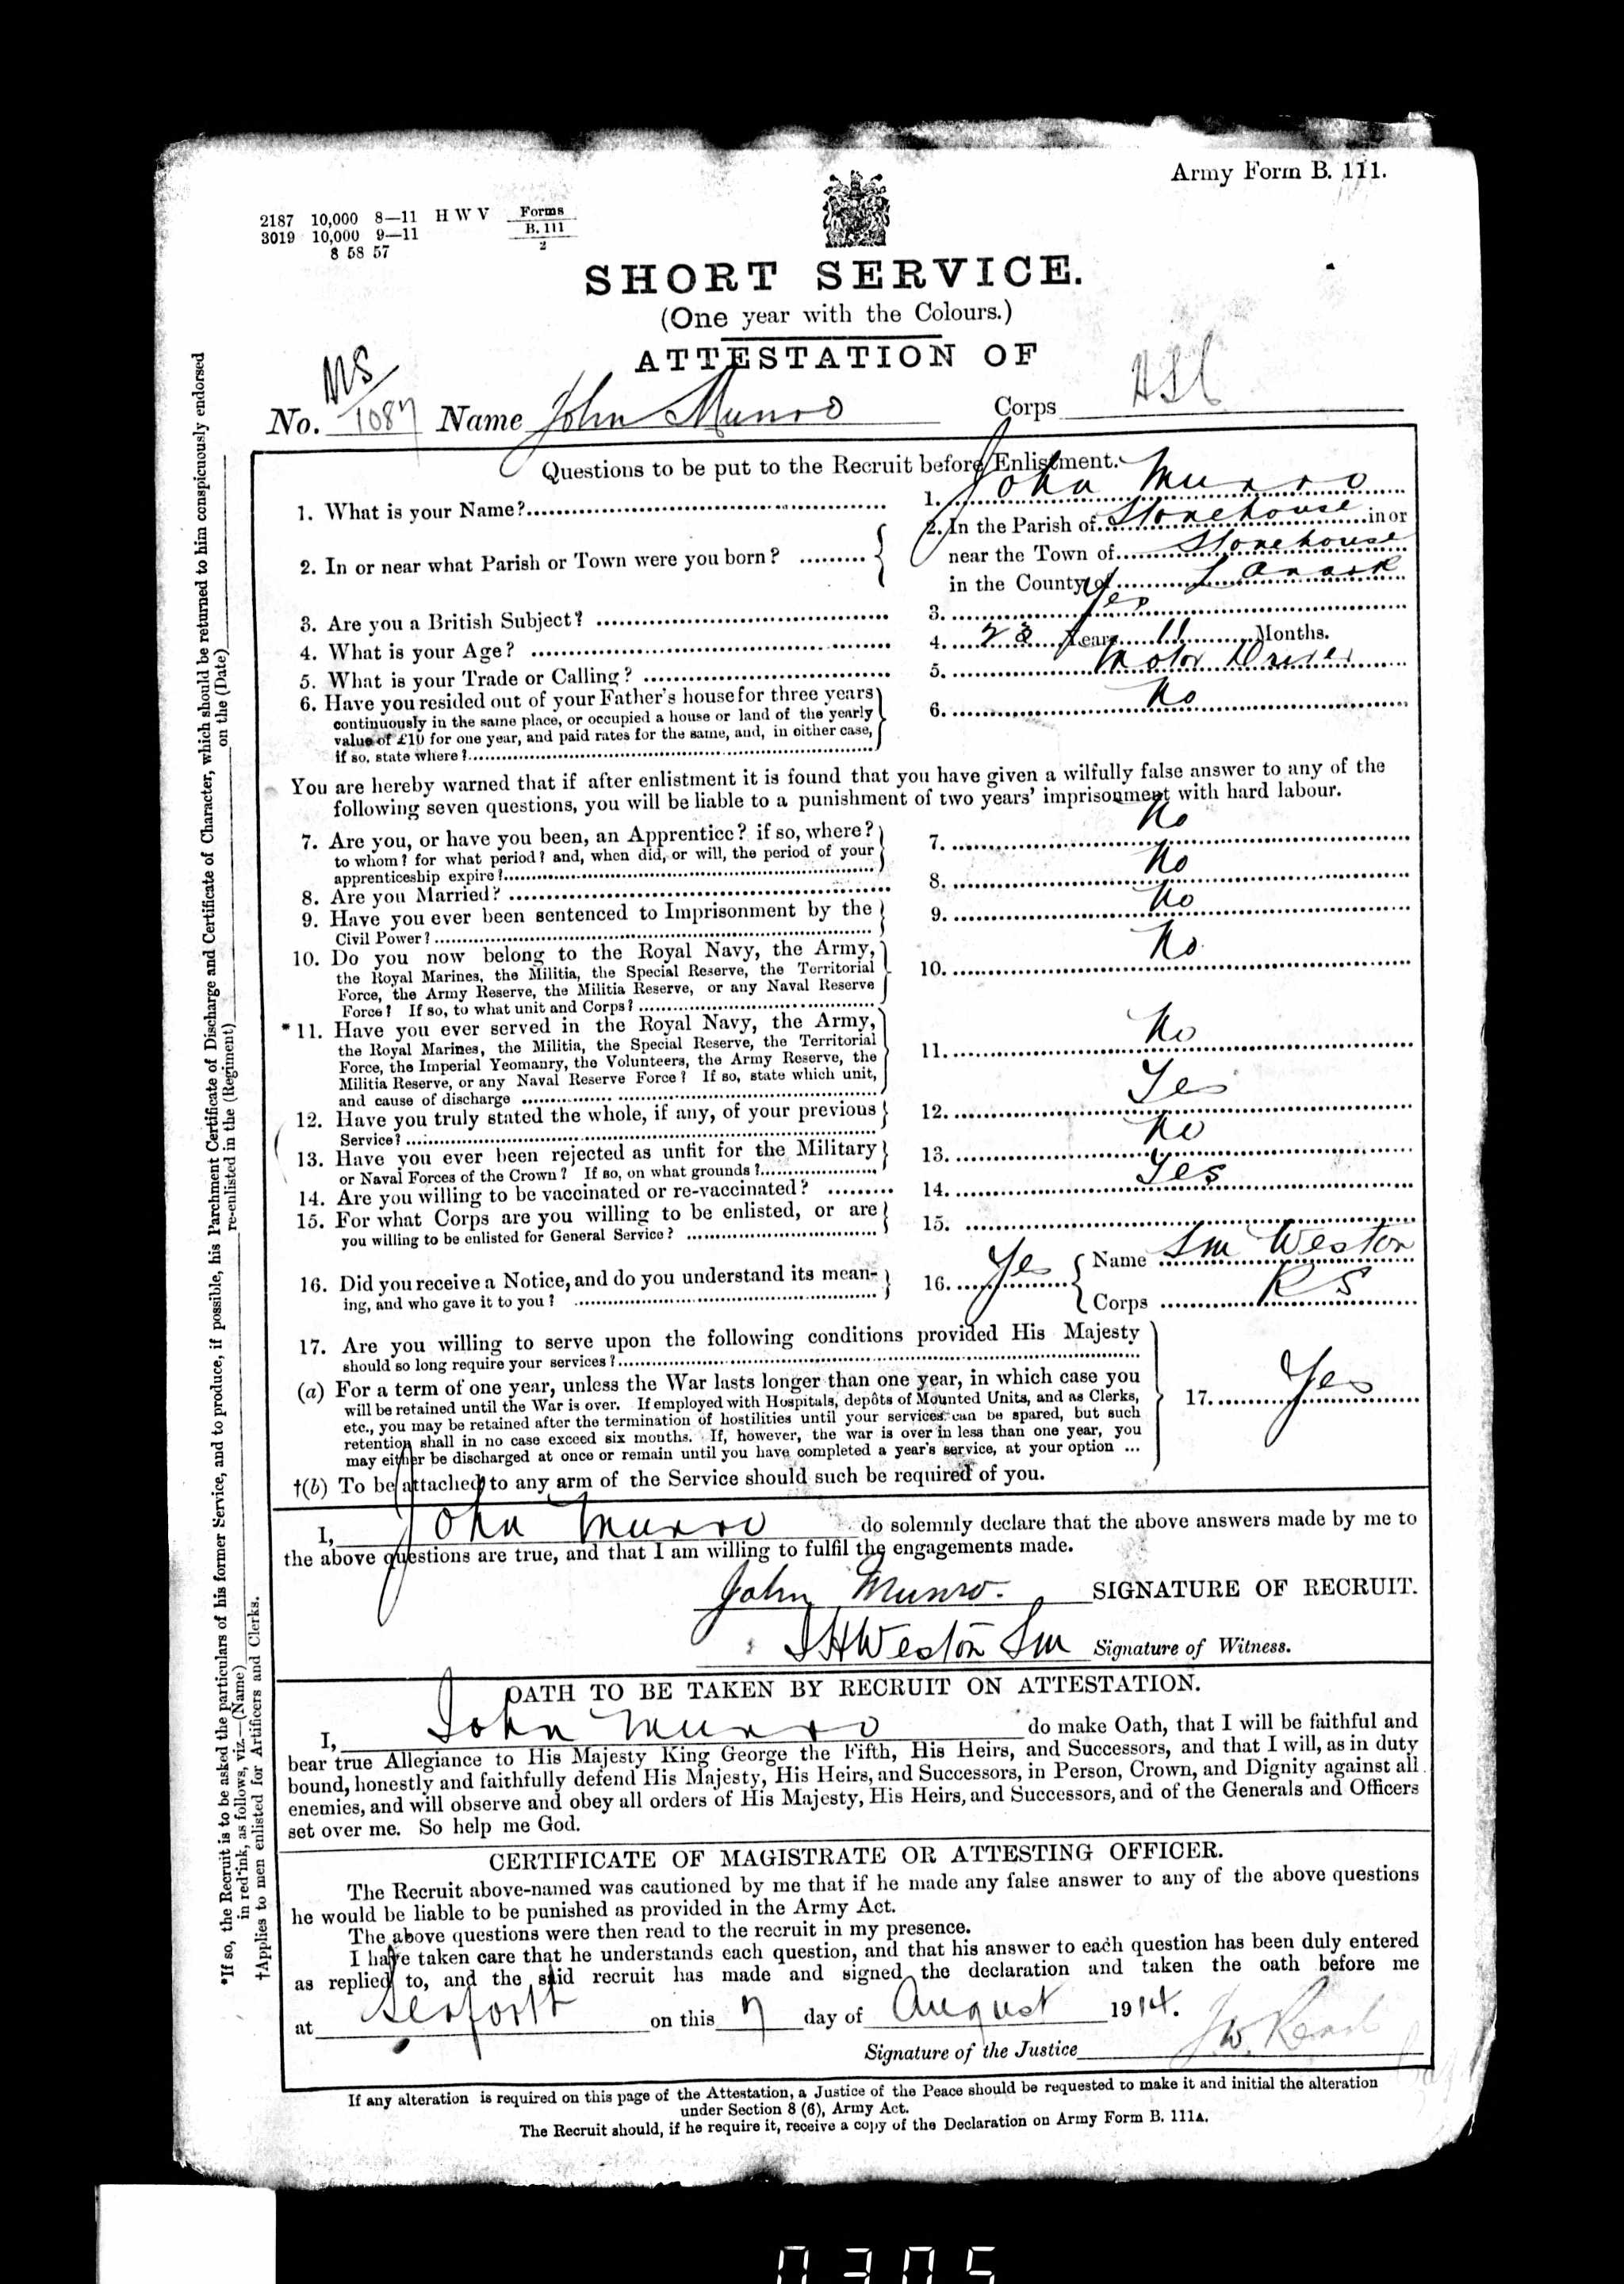 Army Form B. 111.
2187 10,000 8—11 H W V Forms
3019 10,000 9—11 B. 111
8 58 57 2
SHORT SERVICE.
(One year with the Colours.)
ATTESTATION OF
MS/
No. 1087 Name John Munro Corps ASC
Questions to be put to the Recruit before Enlistment.
1. What is your Name? 1. John Munro
2. In or near what Parish or Town were you born? 2. In the Parish of Stonehouse in or
near the Town of Stonehouse
in the County of Lanark
3. Are you a British Subject? 3. Yes
4. What is your Age? 4. 23 Years 11 Months.
5. What is your Trade or Calling? 5. Motor Driver
6. Have you resided out of your Father's house for three years 6. No
continuously in the same place, or occupied a house or land of the yearly
value of £10 for one year, and paid rates for the same, and, in either case,
if so, state where?
You are hereby warned that if after enlistment it is found that you have given a wilfully false answer to any of the
following seven questions, you will be liable to a punishment of two years' imprisonment with hard labour.
7. Are you, or have you been, an Apprentice? if so, where? 7. No
to whom? for what period? and, when did, or will, the period of your
apprenticeship expire?
8. Are you Married? 8. No
9. Have you ever been sentenced to Imprisonment by the 9. No
Civil Power?
10. Do you now belong to the Royal Navy, the Army, 10. No.
the Royal Marines, the Militia, the Special Reserve, the Territorial
Force, the Army Reserve, the Militia Reserve, or any Naval Reserve
Force? If so, to what unit and Corps?
*11. Have you ever served in the Royal Navy, the Army, 11. No
the Royal Marines, the Militia, the Special Reserve, the Territorial
Force, the Imperial Yeomanry, the Volunteers, the Army Reserve, the
Militia Reserve, or any Naval Reserve Force? If so, state which unit,
and cause of discharge
12. Have you truly stated the whole, if any, of your previous 12. Yes
Service?
13. Have you ever been rejected as unfit for the Military 13. No
or Naval Forces of the Crown? If so, on what grounds?
14. Are you willing to be vaccinated or re-vaccinated? 14. Yes
15. For what Corps are you willing to be enlisted, or are 15.
you willing to be enlisted for General Service?
16. Did you receive a Notice, and do you understand its mean- 16. Yes Name Sm Weston
ing, and who gave it to you? Corps RS
17. Are you willing to serve upon the following conditions provided His Majesty
should so long require your services?
(a) For a term of one year, unless the War lasts longer than one year, in which case you 17. Yes
will be retained until the War is over. If employed with Hospitals, depôts of Mounted Units, and as Clerks,
etc., you may be retained after the termination of hostilities until your services can be spared, but such
retention shall in no case exceed six months. If, however, the war is over in less than one year, you
may either be discharged at once or remain until you have completed a year's service, at your option ...
†(b) To be attached to any arm of the Service should such be required of you.
I, John Munro do solemnly declare that the above answers made by me to
the above questions are true, and that I am willing to fulfil the engagements made.
John Munro. SIGNATURE OF RECRUIT.
Weston Sm Signature of Witness.
OATH TO BE TAKEN BY RECRUIT ON ATTESTATION.
I, John Munro do make Oath, that I will be faithful and
bear true Allegiance to His Majesty King George the Fifth, His Heirs, and Successors, and that I will, as in duty
bound, honestly and faithfully defend His Majesty, His Heirs, and Successors, in Person, Crown, and Dignity against all
enemies, and will observe and obey all orders of His Majesty, His Heirs, and Successors, and of the Generals and Officers
set over me. So help me God.
CERTIFICATE OF MAGISTRATE OR ATTESTING OFFICER.
The Recruit above-named was cautioned by me that if he made any false answer to any of the above questions
he would be liable to be punished as provided in the Army Act.
The above questions were then read to the recruit in my presence.
I have taken care that he understands each question, and that his answer to each question has been duly entered
as replied to, and the said recruit has made and signed the declaration and taken the oath before me
at Seaforth on this 7 day of August 1914.
Signature of the Justice
If any alteration is required on this page of the Attestation, a Justice of the Peace should be requested to make it and initial the alteration
under Section 8 (6), Army Act.
The Recruit should, if he require it, receive a copy of the Declaration on Army Form B. 111A.
*If so, the Recruit is to be asked the particulars of his former Service, and to produce, if possible, his Parchment Certificate of Discharge and Certificate of Character, which should be returned to him conspicuously endorsed
in red ink, as follows, viz.—(Name) re-enlisted in the (Regiment) on the (Date)
†Applies to men enlisted for Artificers and Clerks.
0305